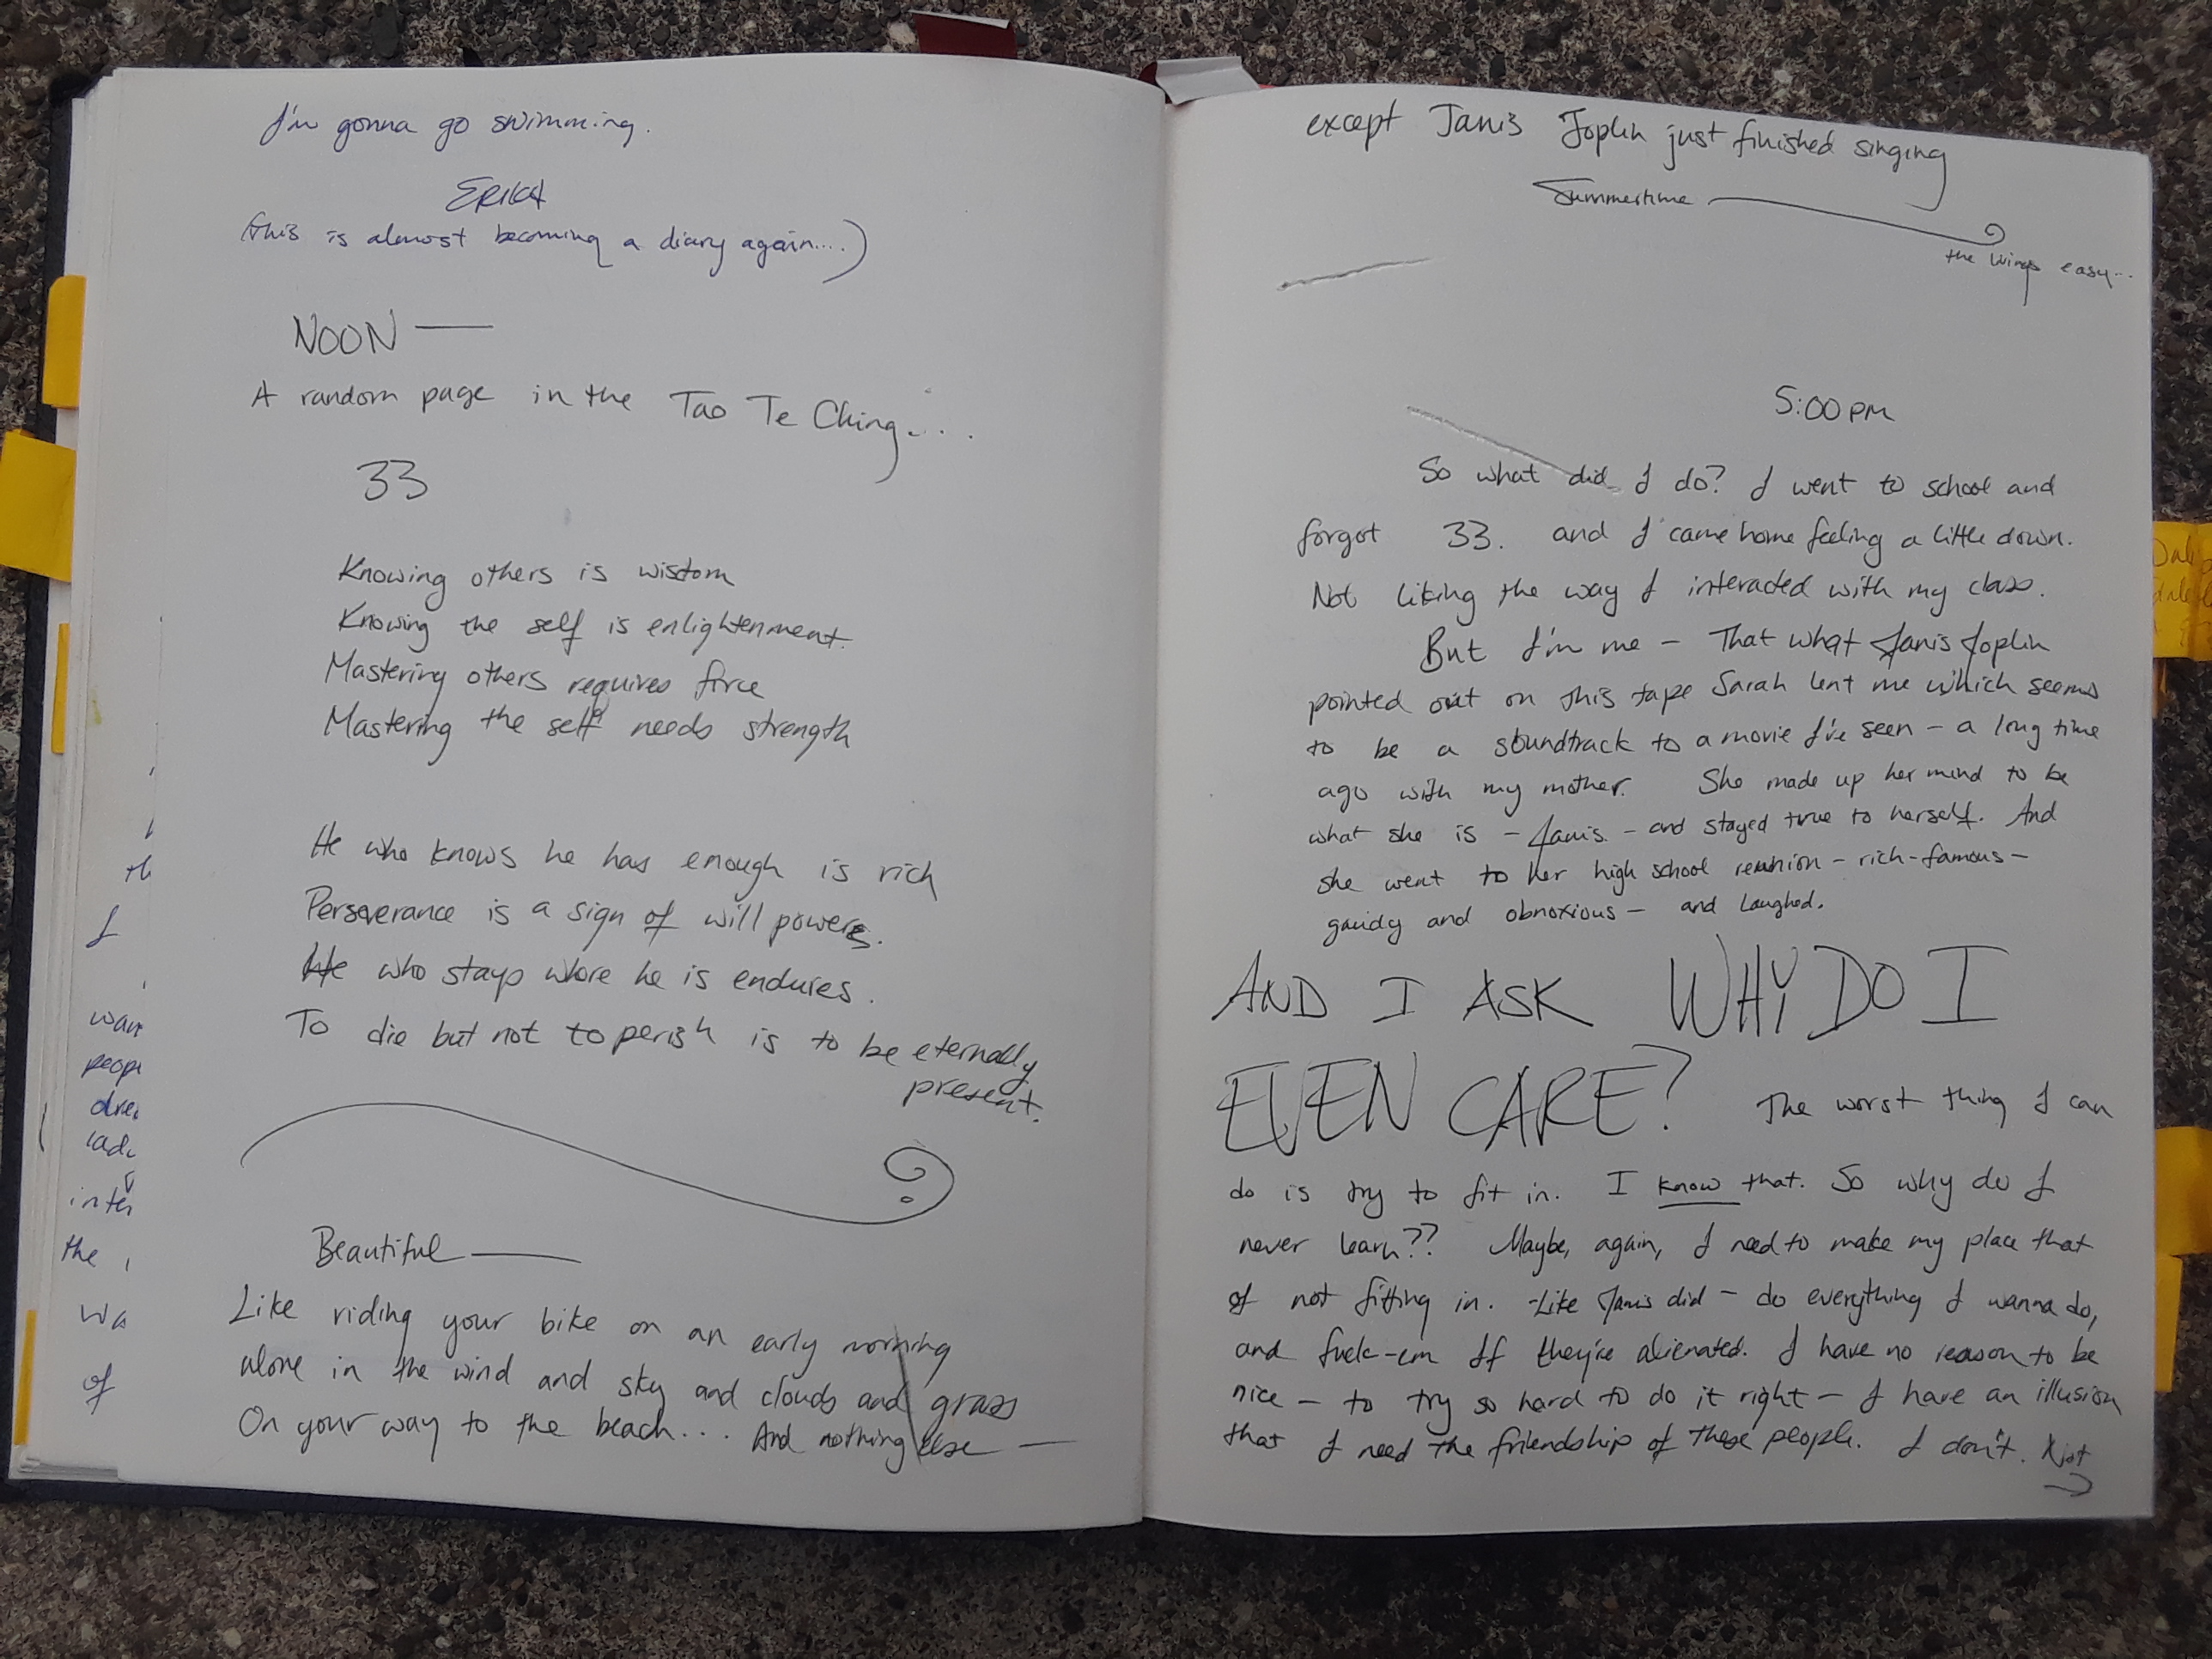 I'm gonna go swimming.
ERIKA
(this is almost becoming a diary again....)
NOON —
A random page in the Tao Te Ching....
33
Knowing others is wisdom
Knowing the self is enlightenment.
Mastering others requires force
Mastering the self needs strength
He who knows he has enough is rich
Perseverance is a sign of will power.
He who stays where he is endures.
To die but not to perish is to be eternally
present.
Beautiful —
Like riding your bike on an early morning
alone in the wind and sky and clouds and grass
On your way to the beach... And nothing else —
except Janis Joplin just finished singing
Summertime
the livings easy...
5:00 PM
So what did I do? I went to school and
forgot 33. and I came home feeling a little down.
Not liking the way I interacted with my class.
But I'm me - That what Janis Joplin
pointed out on this tape Sarah lent me which seems
to be a soundtrack to a movie I've seen - a long time
ago with my mother. She made up her mind to be
what she is - Janis - and stayed true to herself. And
she went to her high school reunion - rich-famous -
gaudy and obnoxious - and laughed.
AND I ASK WHY DO I
EVEN CARE? The worst thing I can
do is try to fit in. I know that. So why do I
never learn?? Maybe, again, I need to make my place that
of not fitting in. -Like Janis did - do everything I wanna do,
and fuck-em If they're alienated. I have no reason to be
nice - to try so hard to do it right - I have an illusion
that I need the friendship of these people. I don't. Not
→